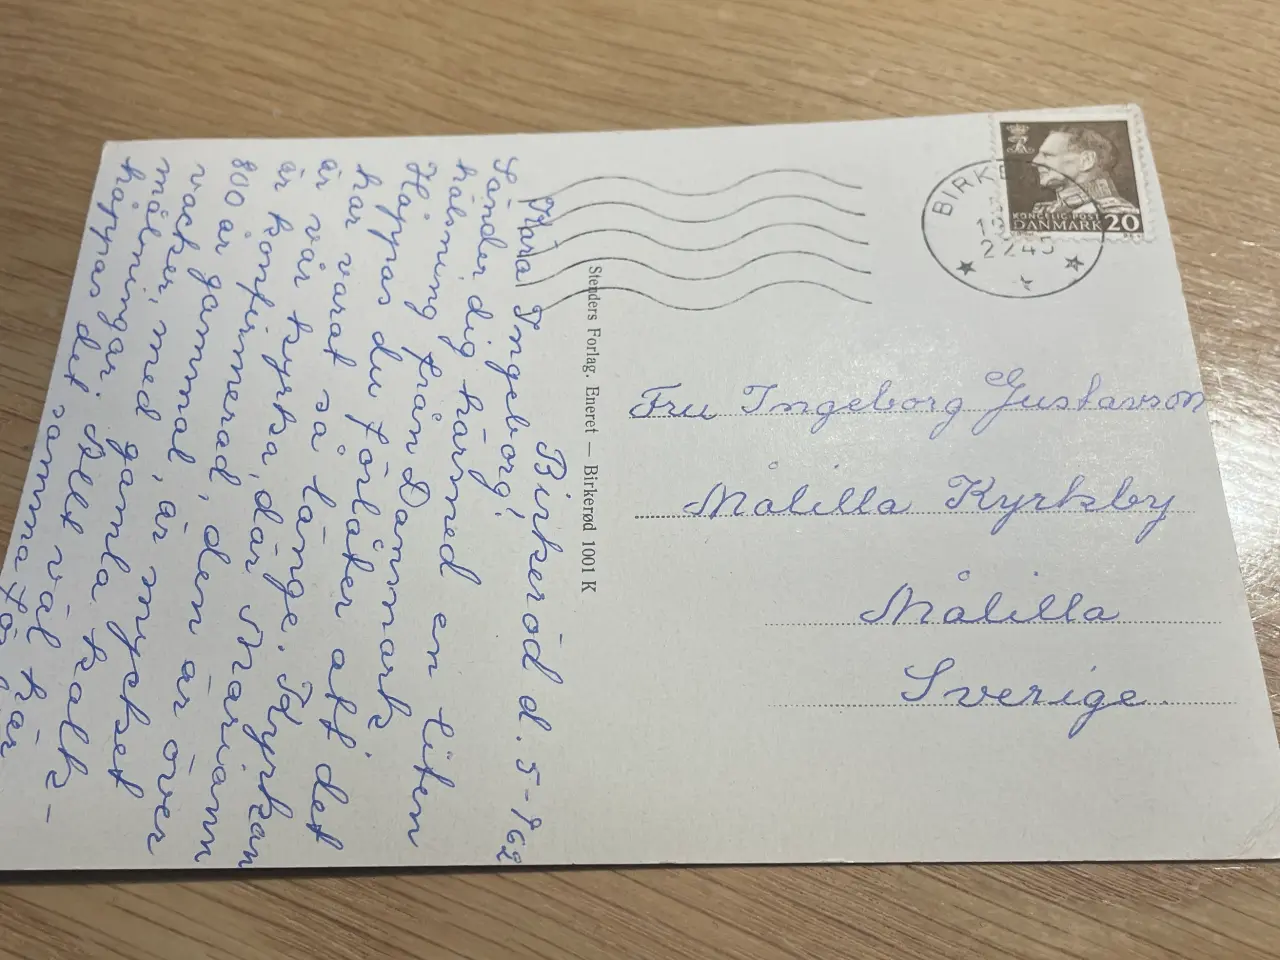 Birkeröd d. 5-1 62
Kära Ingeborg!
Sänder dig härmed en liten
hälsning från Danmark
Hoppas du förlåter att det
har varat så länge. Kyrkan
är vår kyrka, där Mariann
är konfirmerad, den är över
800 år gammal, är mycket
vacker, med gamla kalk-
målningar. Allt väl här
hoppas det samma
Stenders Forlag. Eneret — Birkerød 1001 K
BIRKE
KONGELIG POST
DANMARK 20
Fru Ingeborg Gustavson
Målilla Kyrkby
Målilla
Sverige